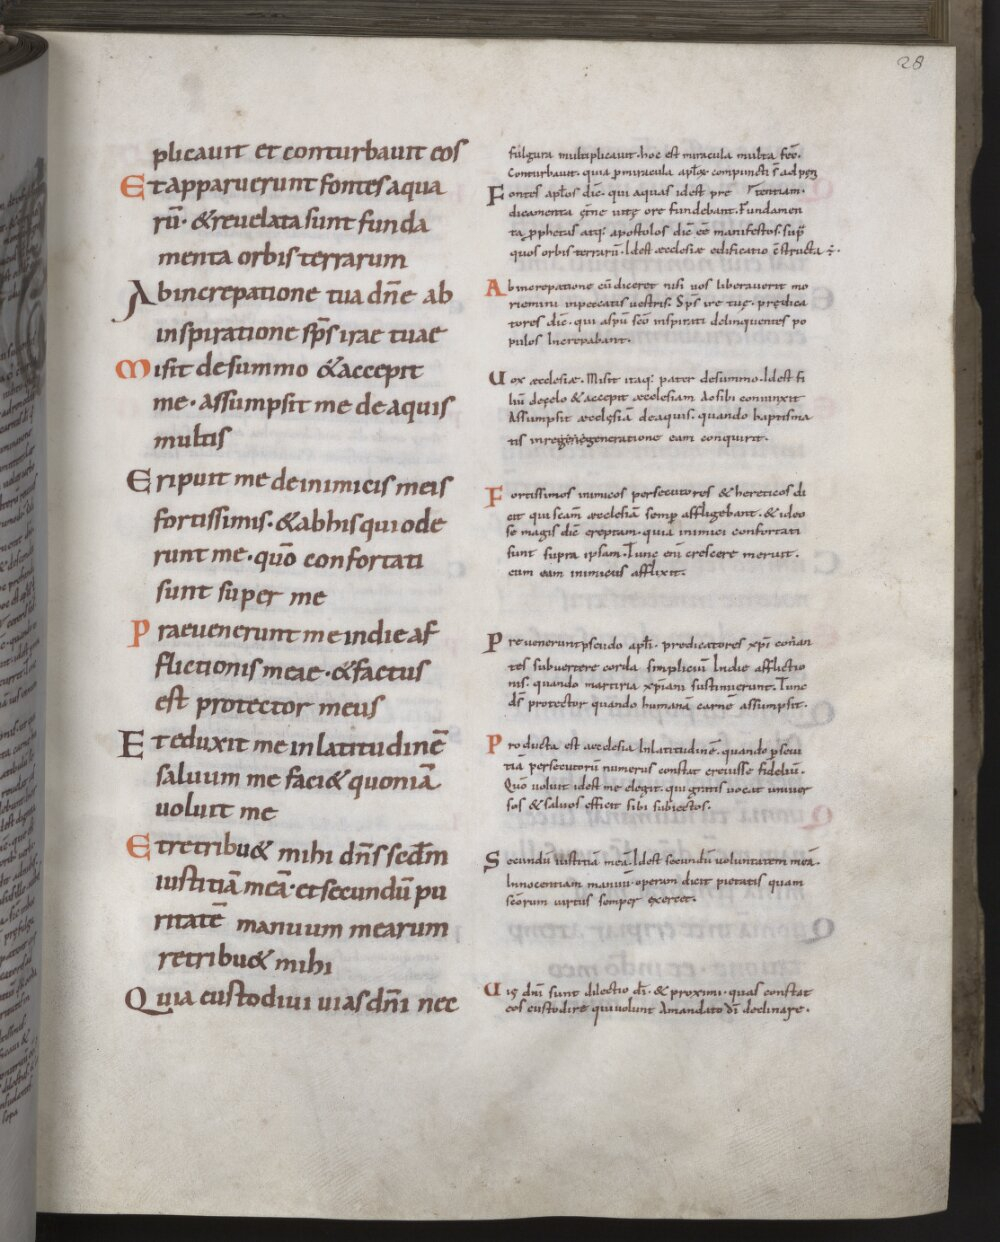 28
plicauit et conturbauit eos
Et apparuerunt fontes aqua
rū· & reuelata sunt funda
menta orbis terrarum
Ab increpatione tua dn̄e ab
inspiratione sp̄s irae tuae
Misit de summo & accepit
me· assumpsit me de aquis
multis
Eripuit me de inimicis meis
fortissimis· & ab his qui ode
runt me· quō confortati
sunt super me
Praeuenerunt me in die af
flictionis meae· & factus
est protector meus
Et eduxit me in latitudinē
saluum me faci& quoniā
uoluit me
Et retribu& mihi dn̄s secd̄m
iustitiā meā· et secundū pu
ritatē manuum mearum
retribu& mihi
Quia custodiui uias dn̄i nec
fulgura multiplicauit· hoc est miracula multa
Conturbauit· quia miracula compuncti ad
Fontes apl̄os dīc· qui aquas idest pre tentiam·
dicamenta ore fundebant· Fundamen
ta atq; apostolos dīc manifestos·
quos orbis terrarū· Idest aecclesiae edificatio
Ab increpatione eū diceret nisi uos liberauerit mo
riemini in peccatis uestris· Sp̄s ire tuę· prędica
tores dīc· qui asp̄u sc̄o inspirati delinquentes po
pulos Increpabant·
Uox aecclesiae· Misit itaq; pater desummo· Idest fi
liū decęlo & accepit aecclesiam Ao sibi coniunxit
Assumpsit aecclęsiā deaquis· quando baptisma
tis eam conquirit·
Fortissimos inimicos persecutores & hereticos di
cit qui scam̄ aecclesiā semp̄ affligebant· & ideo
se magis dīc ereptam· quia inimici confortati
sunt supra ipsam· Tunc eni᷒ crescere meruit·
cum eam inimicus afflixit·
Preuenerunt pseudo apl̄i· predicatores xp̄i
tes subuertere corda simplicium̄ In die afflictio
nis· quando martiria xp̄iani sustinuerunt· Tunc
ds̄ protector quando humanā carnē assumpsit·
Producta est aecclesia In latitudinē· quando
tiā persecutorū numerus constat creuisse fideliū·
Quō uoluit idest me elegit· qui gratis uocat uniuer
sos & saluos efficit sibi subiectos·
Secundū iustitiā meā· Idest secundū uoluntatem meā·
Innocentiam manuū· operum dicit pietatis quam
sc̄orum uirtus semper exercet·
Uię dn̄i sunt dilectio dī· & proximi· quas constat
eos custodire qui uolunt Amandato dī declinare·